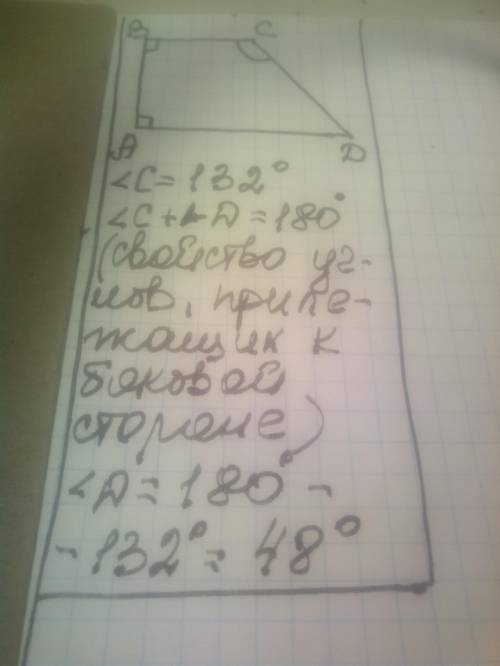 B C
A D
∠C = 132°
∠C + ∠D = 180°
(свойство уг-
лов, приле-
жащих к
боковой
стороне)
∠D = 180° -
- 132° = 48°